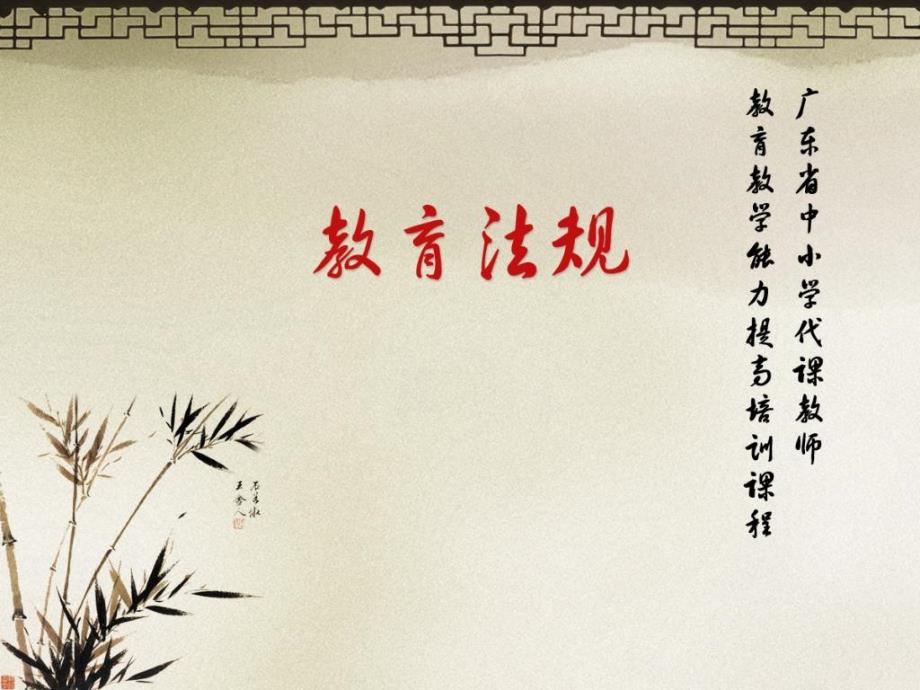 广东省中小学代课教师
教育教学能力提高培训课程
教育法规